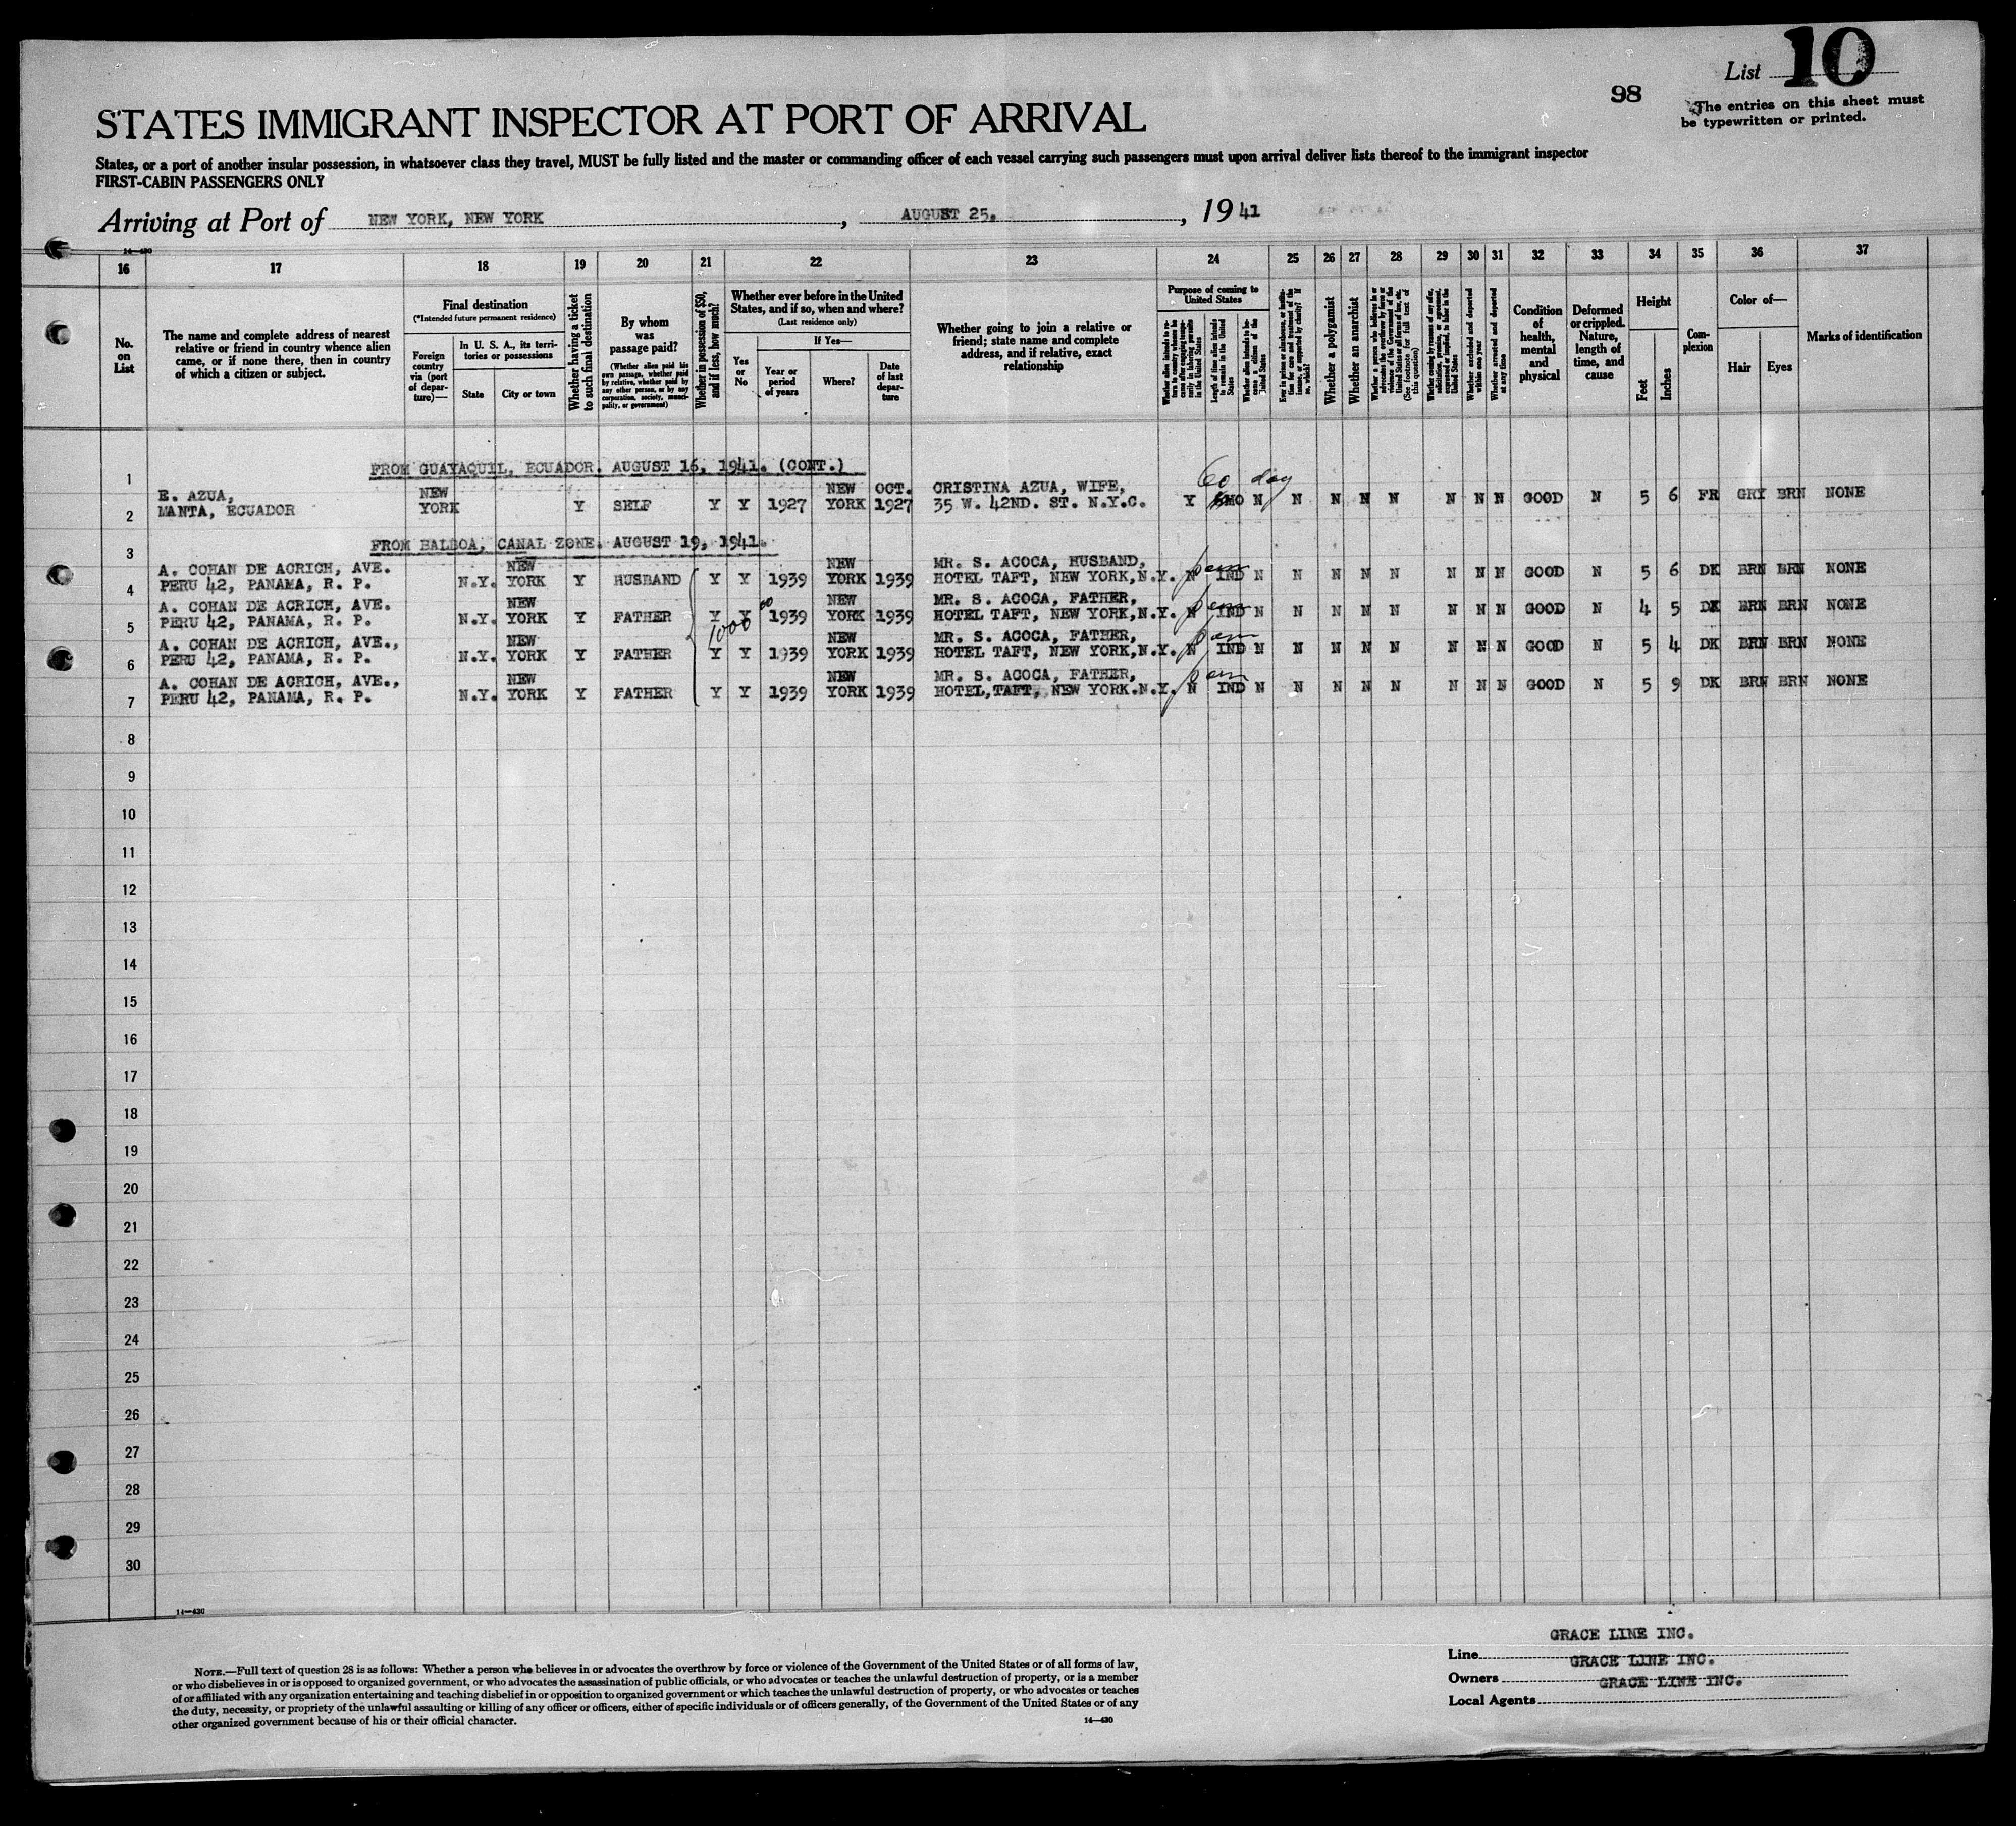 List 10
98
The entries on this sheet must
be typewritten or printed.
STATES IMMIGRANT INSPECTOR AT PORT OF ARRIVAL
States, or a port of another insular possession, in whatsoever class they travel, MUST be fully listed and the master or commanding officer of each vessel carrying such passengers must upon arrival deliver lists thereof to the immigrant inspector
FIRST-CABIN PASSENGERS ONLY
Arriving at Port of NEW YORK, NEW YORK, AUGUST 25, 1941
14—430
16 17 18 19 20 21 22 23 24 25 26 27 28 29 30 31 32 33 34 35 36 37
No. on List
The name and complete address of nearest
relative or friend in country whence alien
came, or if none there, then in country
of which a citizen or subject.
Final destination
(*Intended future permanent residence)
Foreign country via (port of departure)—
In U. S. A., its territories or possessions
State
City or town
Whether having a ticket to such final destination
By whom was passage paid?
(Whether alien paid his own passage, whether paid by relative, whether paid by any other person, or by any corporation, society, municipality, or government)
Whether in possession of $50, and if less, how much?
Whether ever before in the United
States, and if so, when and where?
(Last residence only)
Yes or No
If Yes—
Year or period of years
Where?
Date of last departure
Whether going to join a relative or
friend; state name and complete
address, and if relative, exact
relationship
Purpose of coming to
United States
Length of time alien intends to remain in the United States
Whether alien intends to become a citizen of the United States
Whether a polygamist
Whether an anarchist
(See footnote for full text of this question)
Whether excluded and deported within one year
Whether arrested and deported at any time
Condition of health, mental and physical
Deformed or crippled. Nature, length of time, and cause
Height
Feet
Inches
Complexion
Color of—
Hair
Eyes
Marks of identification
1
FROM GUAYAQUIL, ECUADOR. AUGUST 16, 1941. (CONT.)
60 day
E. AZUA, NEW NEW OCT. CRISTINA AZUA, WIFE,
2 MANTA, ECUADOR YORK Y SELF Y Y 1927 YORK 1927 35 W. 42ND. ST. N.Y.C. Y N N N N N N N N GOOD N 5 6 FR GRY BRN NONE
3 FROM BALBOA, CANAL ZONE. AUGUST 19, 1941.
A. COHAN DE ACRICH, AVE. NEW NEW MR. S. ACOCA, HUSBAND, perm
4 PERU 42, PANAMA, R. P. N.Y. YORK Y HUSBAND Y Y 1939 YORK 1939 HOTEL TAFT, NEW YORK,N.Y. N IND N N N N N N N N GOOD N 5 6 DK BRN BRN NONE
A. COHAN DE ACRICH, AVE. NEW NEW MR. S. ACOCA, FATHER, perm
5 PERU 42, PANAMA, R. P. N.Y. YORK Y FATHER Y Y 1939 YORK 1939 HOTEL TAFT, NEW YORK,N.Y. N IND N N N N N N N N GOOD N 4 5 DK BRN BRN NONE
1000 00
A. COHAN DE ACRICH, AVE., NEW NEW MR. S. ACOCA, FATHER, perm
6 PERU 42, PANAMA, R. P. N.Y. YORK Y FATHER Y Y 1939 YORK 1939 HOTEL TAFT, NEW YORK,N.Y. N IND N N N N N N N N GOOD N 5 4 DK BRN BRN NONE
A. COHAN DE ACRICH, AVE., NEW NEW MR. S. ACOCA, FATHER, perm
7 PERU 42, PANAMA, R. P. N.Y. YORK Y FATHER Y Y 1939 YORK 1939 HOTEL, TAFT, NEW YORK.N.Y. N IND N N N N N N N N GOOD N 5 9 DK BRN BRN NONE
8
9
10
11
12
13
14
15
16
17
18
19
20
21
22
23
24
25
26
27
28
29
30
14—430
NOTE.—Full text of question 28 is as follows: Whether a person who believes in or advocates the overthrow by force or violence of the Government of the United States or of all forms of law,
or who disbelieves in or is opposed to organized government, or who advocates the assassination of public officials, or who advocates or teaches the unlawful destruction of property, or is a member
of or affiliated with any organization entertaining and teaching disbelief in or opposition to organized government or which teaches the unlawful destruction of property, or who advocates or teaches
the duty, necessity, or propriety of the unlawful assaulting or killing of any officer or officers, either of specific individuals or of officers generally, of the Government of the United States or of any
other organized government because of his or their official character.
14—430
GRACE LINE INC.
Line
GRACE LINE INC.
Owners
GRACE LINE INC.
Local Agents